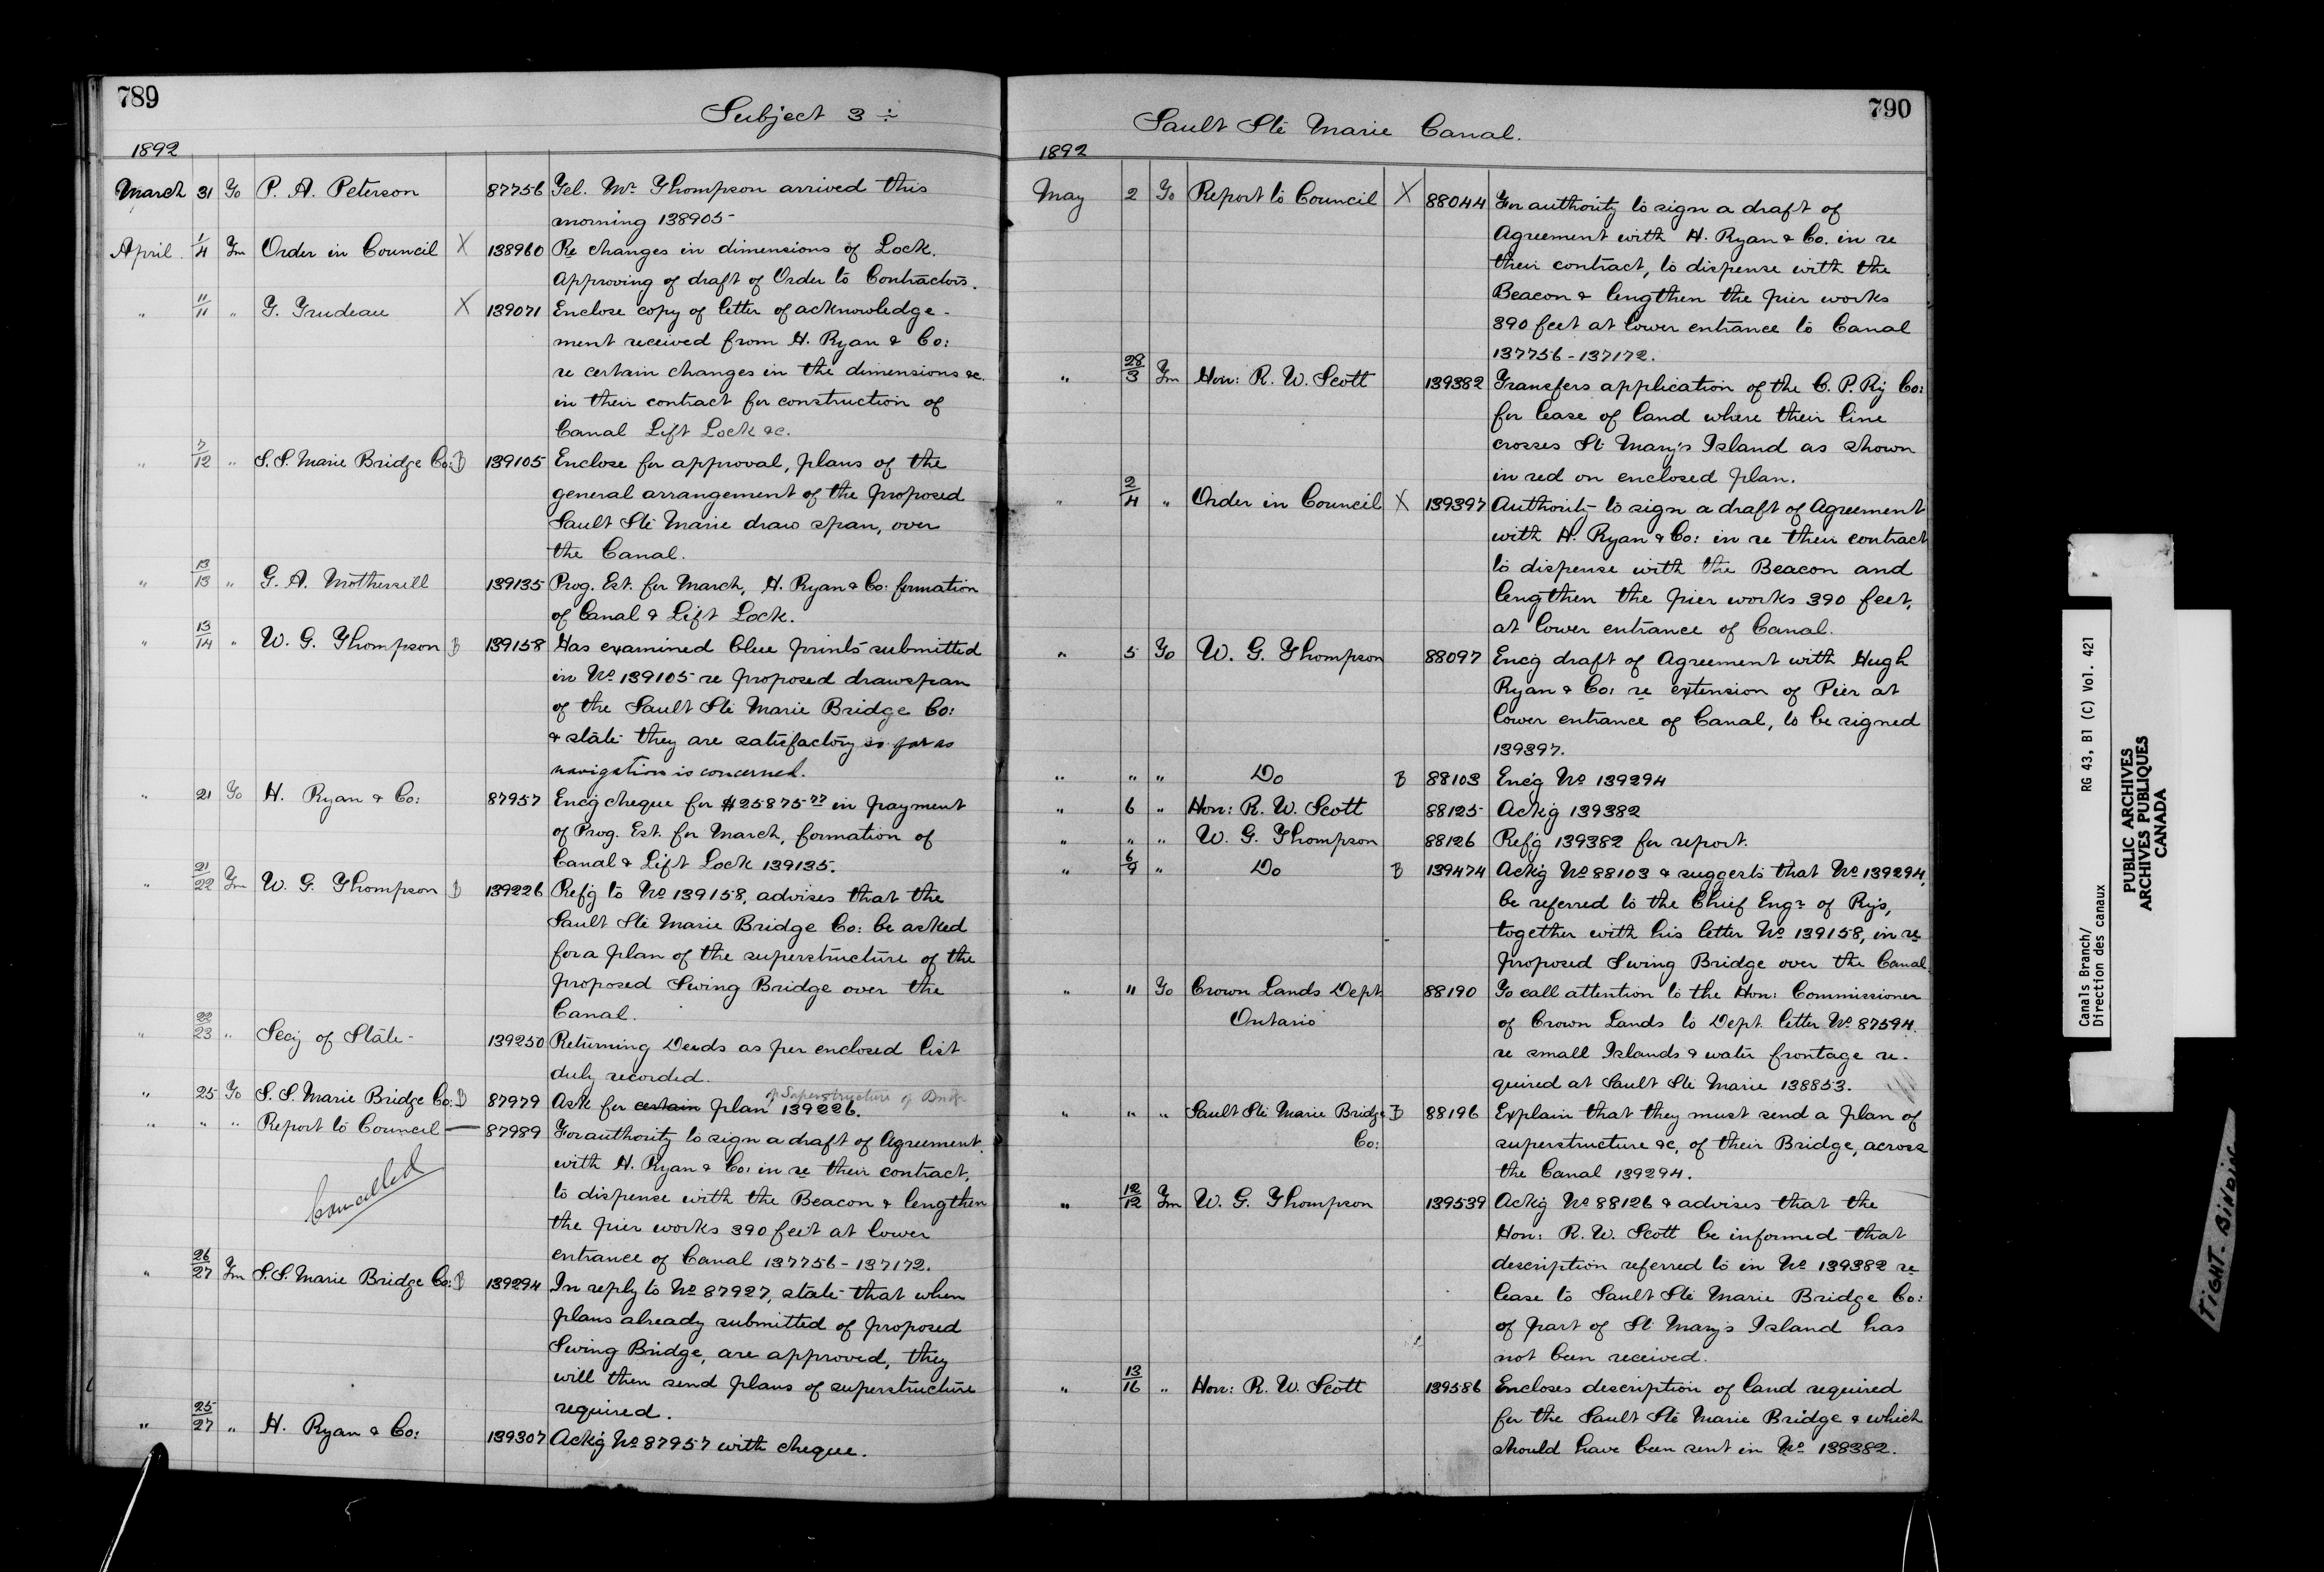 789
Subject 3 ÷
1892
March 31 To P. A. Peterson 87756 Tel. Mr. Thompson arrived this
morning 138905
April 1/4 Fm Order in Council X 138960 Re changes in dimensions of Lock.
Approving of draft of Order to Contractors.
" 11/11 " T. Trudeau X 139071 Enclose copy of letter of acknowledge-
ment received from H. Ryan & Co:
re certain changes in the dimensions &c.
in their contract for construction of
Canal Lift Lock &c.
" 7/12 " S. S. Marie Bridge Co: B 139105 Enclose for approval, plans of the
general arrangement of the proposed
Sault Ste Marie draw span, over
the Canal.
" 13/13 " G. A. Mothersill 139135 Prog. Est. for March, H. Ryan & Co: formation
of Canal & Lift Lock.
" 13/14 " W. G. Thompson B 139158 Has examined blue prints submitted
in No 139105 re proposed drawspan
of the Sault Ste Marie Bridge Co:
& state they are satisfactory so far as
navigation is concerned.
" 21 To H. Ryan & Co: 87957 Enc'g cheque for $25875 in payment
of Prog. Est. for March, formation of
Canal & Lift Lock 139135.
" 21/22 Fm W. G. Thompson B 139226 Ref'g to No 139158, advises that the
Sault Ste Marie Bridge Co: be asked
for a plan of the superstructure of the
proposed Swing Bridge over the
Canal.
" 22/23 " Secy of State 139250 Returning Deeds as per enclosed list
duly recorded.
of Superstructure of Bridge
" 25 To S. S. Marie Bridge Co: B 87979 Ask for certain plan 139226.
" " " Report to Council — 87989 For authority to sign a draft of Agreement
with H. Ryan & Co: in re their contract,
Cancelled
to dispense with the Beacon & lengthen
the pier works 390 feet at lower
entrance of Canal 137756 - 137172.
" 26/27 Fm S. S. Marie Bridge Co: B 139294 In reply to No 87927, state that when
plans already submitted of proposed
Swing Bridge, are approved, they
will then send plans of superstructure
required.
" 25/27 " H. Ryan & Co: 139307 Ackg No 87957 with cheque.
790
Sault Ste Marie Canal.
1892
May 2 To Report to Council X 88044 For authority to sign a draft of
Agreement with H. Ryan & Co. in re
their contract, to dispense with the
Beacon & lengthen the pier works
390 feet at lower entrance to Canal
137756 - 137172.
" 28/3 Fm Hon: R. W. Scott 139382 Transfers application of the C. P. Ry Co:
for lease of land where their line
crosses St Mary's Island as shown
in red on enclosed plan.
" 2/4 " Order in Council X 139397 Authority to sign a draft of Agreement
with H. Ryan & Co: in re their contract
to dispense with the Beacon and
lengthen the pier works 390 feet,
at lower entrance of Canal.
" 5 To W. G. Thompson 88097 Enc'g draft of Agreement with Hugh
Ryan & Co: re extension of Pier at
lower entrance of Canal, to be signed
139397.
" " " Do B 88103 Enc'g No 139294
" 6 " Hon: R. W. Scott 88125 Ack'g 139382
" " " W. G. Thompson 88126 Ref'g 139382 for report.
" 6/9 " Do B 139474 Ack'g No 88103 & suggests that No 139294,
be referred to the Chief Engr of Rys,
together with his letter No 139158, in re
proposed Swing Bridge over the Canal
" 11 To Crown Lands Dept 88190 To call attention to the Hon: Commissioner
Ontario of Crown Lands to Dept. letter No 87594.
re small Islands & water frontage re-
quired at Sault Ste Marie 138853.
" " " Sault Ste Marie Bridge B 88196 Explain that they must send a plan of
Co: superstructure &c, of their Bridge, across
the Canal 139294.
" 12/12 Fm W. G. Thompson 139539 Ack'g No 88126 & advises that the
Hon: R. W. Scott be informed that
description referred to in No 139382 re
lease to Sault Ste Marie Bridge Co:
of part of St Mary's Island has
not been received.
" 13/16 " Hon: R. W. Scott 139586 Encloses description of land required
for the Sault Ste Marie Bridge & which
should have been sent in No 138382.
Canals Branch/ RG 43, B1 (C) Vol. 421
Direction des canaux
PUBLIC ARCHIVES
ARCHIVES PUBLIQUES
CANADA
TIGHT BINDING